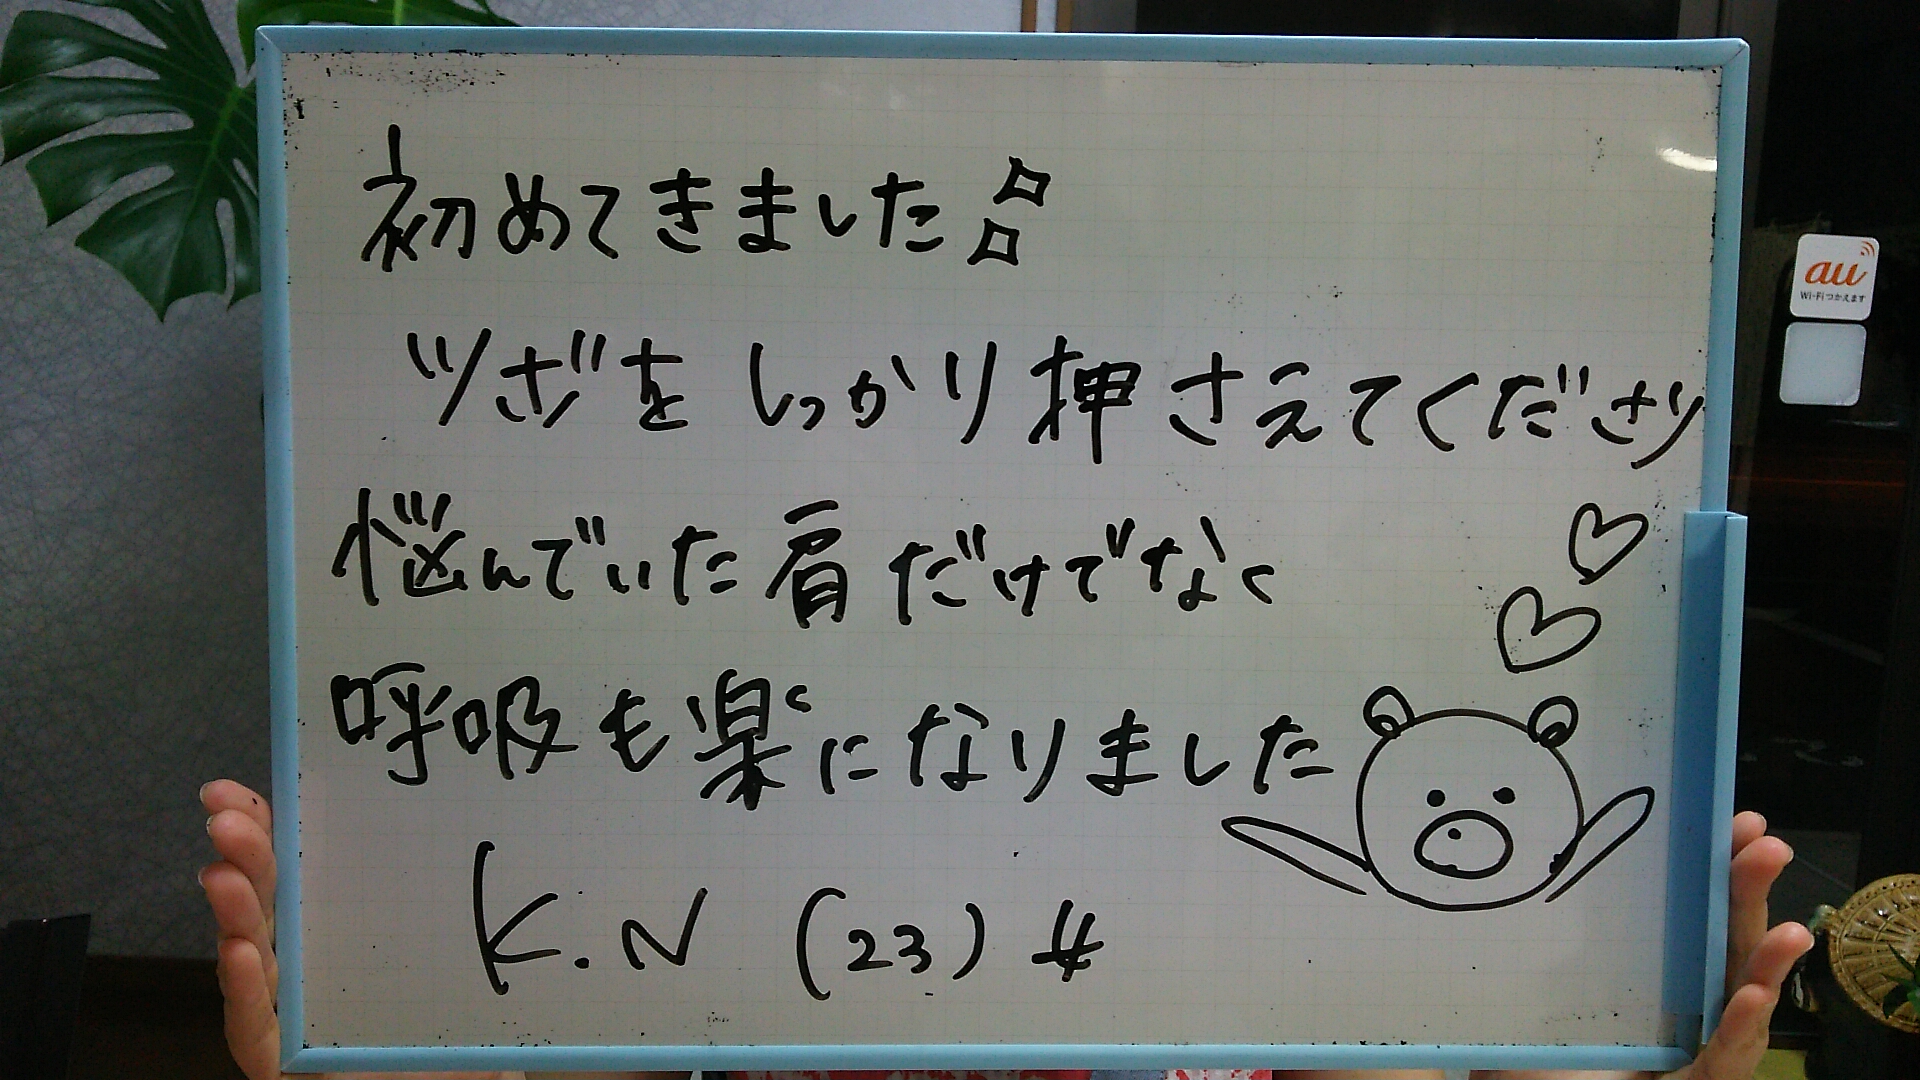 初めてきました
ツボをしっかり押さえてくださり
悩んでいた肩だけでなく
呼吸も楽になりました
K.N (23)
au
Wi-Fiつかえます